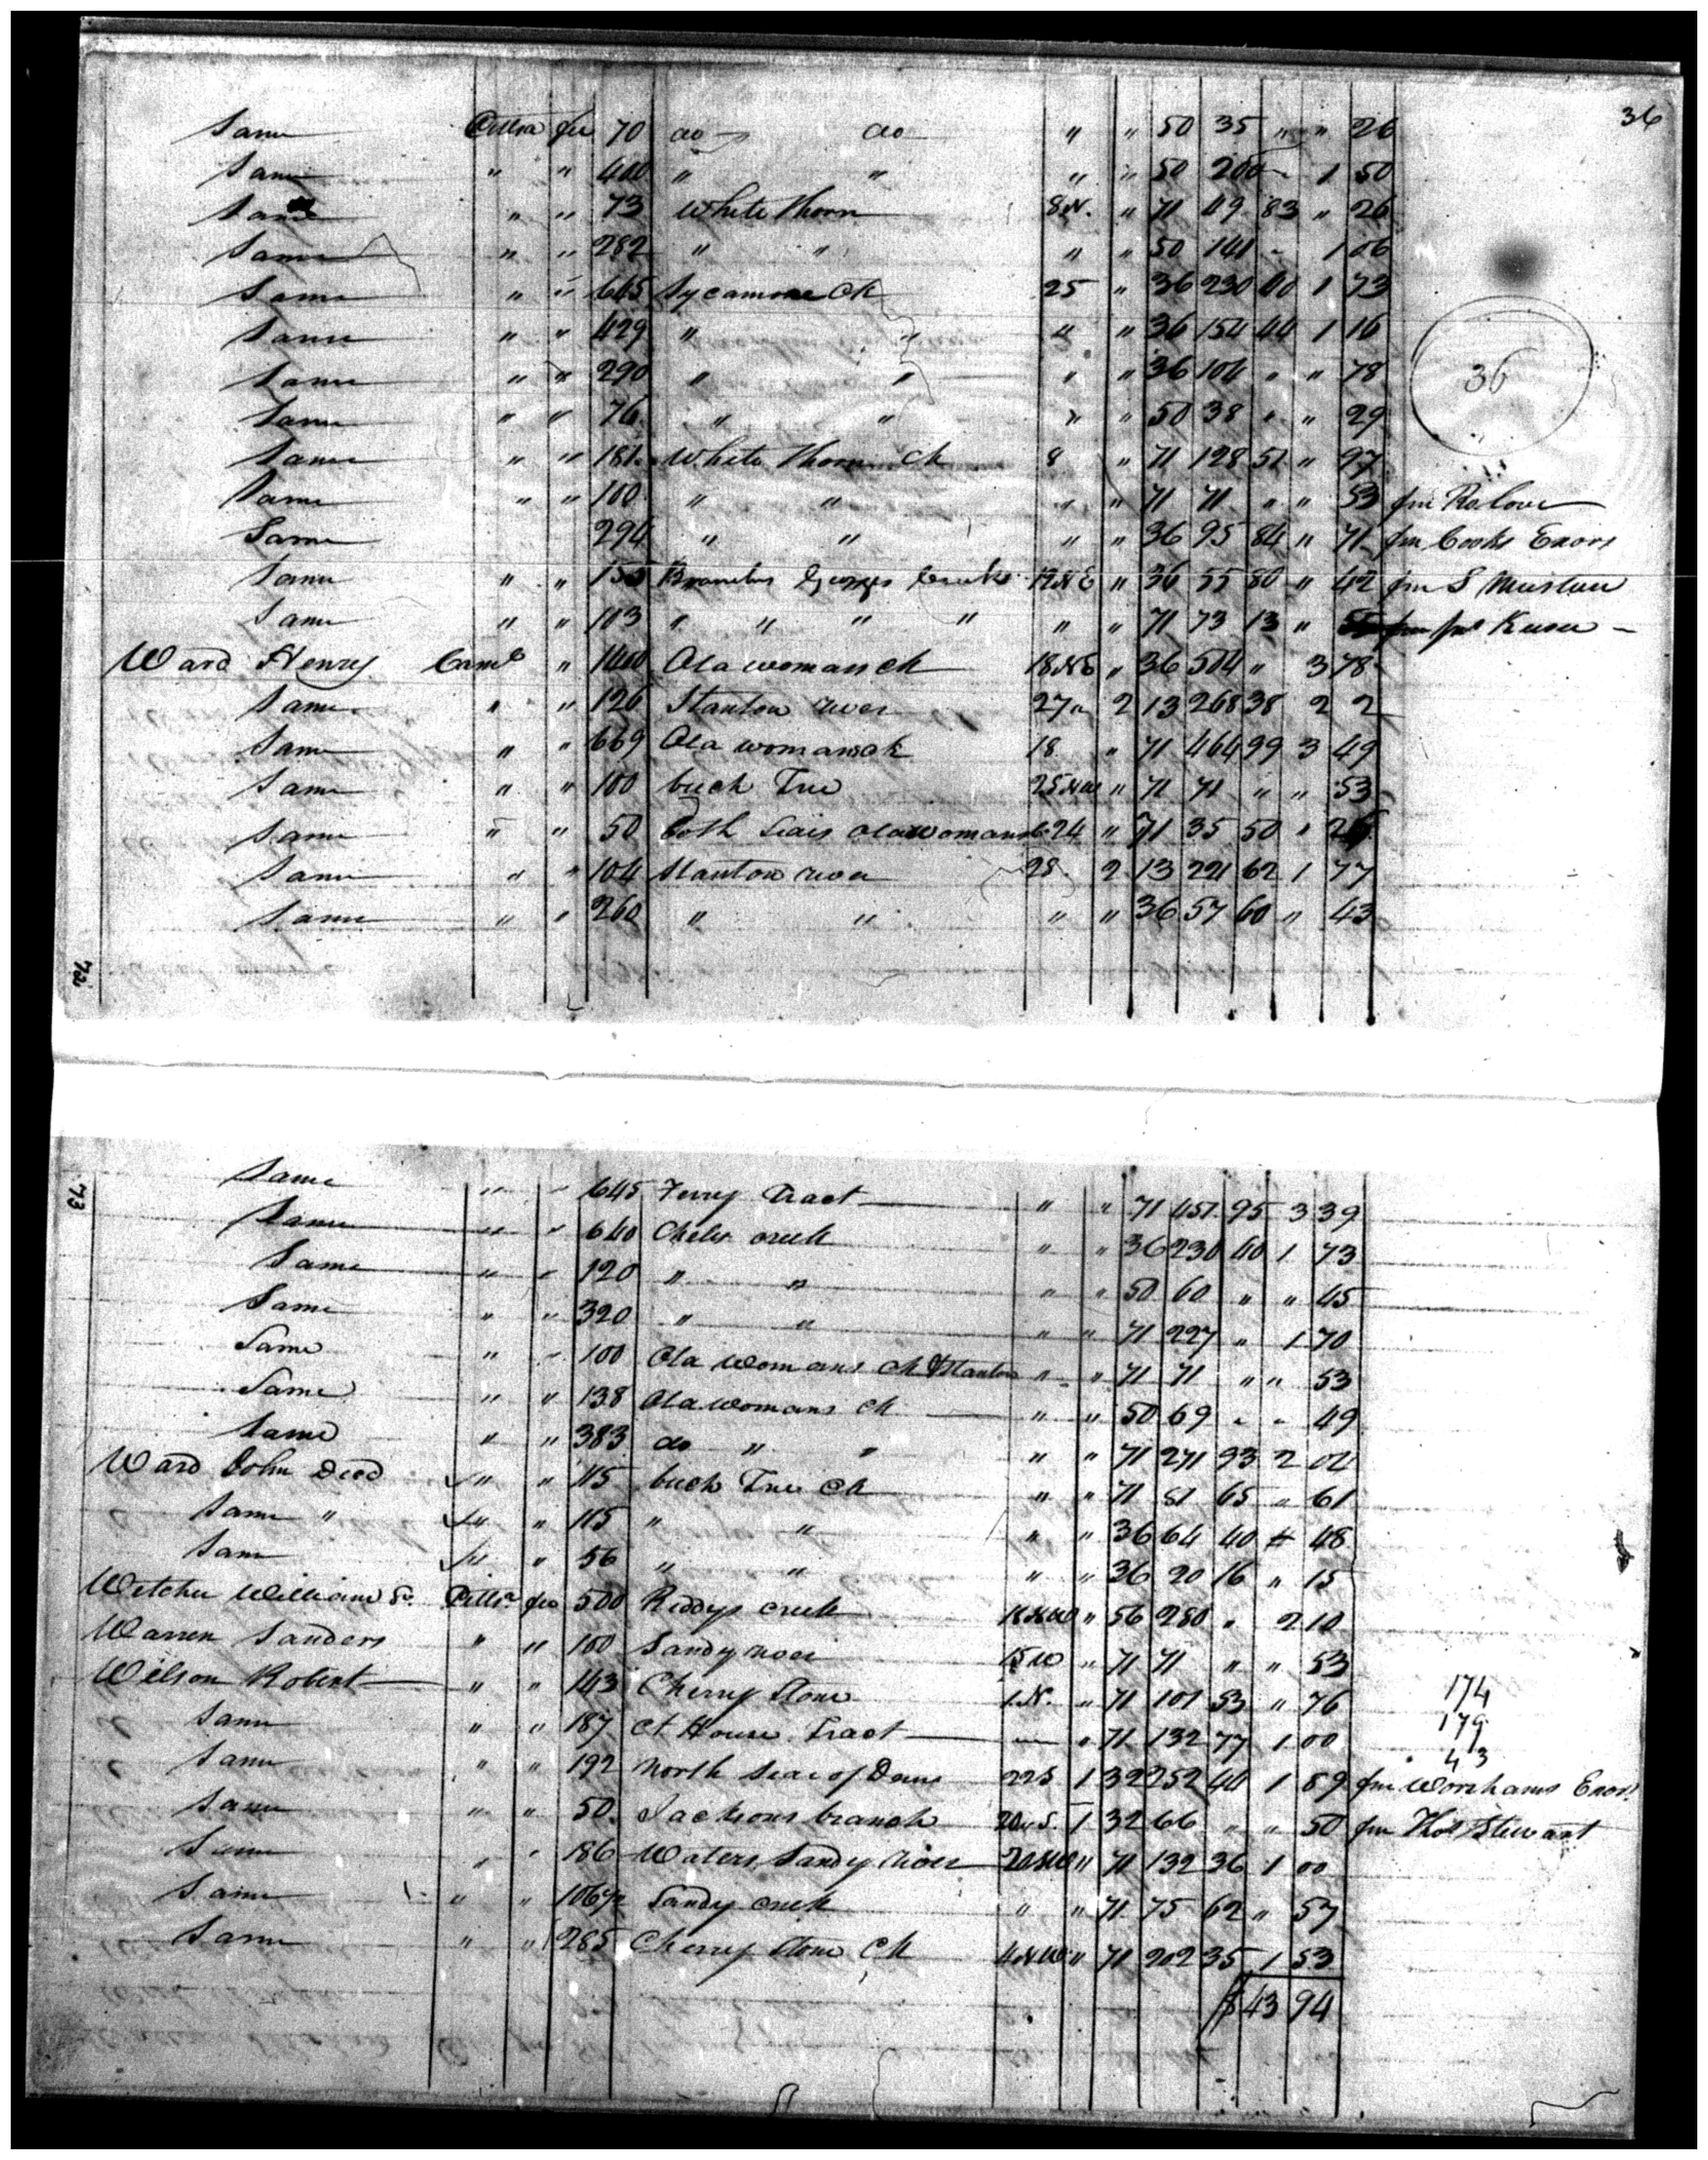 36
Same Pittsa fee 70 do do " " 50 35 " " 26
Same " " 400 " " " " 50 200 - 1 50
Same " " 73 White Thorn 8 N. " 71 49 83 " 26
Same " " 282 " " " " 50 141 - 1 06
Same " " 645 Sycamore Ck 25 " 36 230 40 1 73
Same " " 429 " " " " 36 154 44 1 16
36
Same " " 290 " " " " 36 104 " " 78
Same " " 76 " " " " 50 38 " " 29
Same " " 181 White Thorn Ck 8 " 71 128 51 " 97
Same " " 100 " " " " 71 71 " " 53 fm Ro. Love
Same 294 " " " " 36 95 84 " 71 fm Cooks Exors
Same " " 155 Branches Georges Creek 19 NE " 36 55 80 " 42 fm S
Same " " 103 " " " " " " 71 73 13 " fm
Ward Henry Camb " 1400 Old womans ck 18 NE " 36 504 " 3 78
Same " " 126 Stanton river 27 " 2 13 268 38 2 2
Same " " 669 Old womans ck 18 " 71 464 99 3 49
Same " " 100 beech Tree 25 NW " 71 71 " " 53
Same " " 50 both sides old womans c 24 " 71 35 50 "
Same " " 104 Stanton river 28 2 13 221 62 1 77
Same " " 260 " " " " 36 57 60 " 43
72
73
Same " " 645 Ferry Tract " " 71 457 95 3 39
Same " " 640 creek " " 36 230 40 1 73
Same " " 120 " " " " 50 60 " " 45
Same " " 320 " " " " 71 227 " 1 70
Same " " 100 Old womans ck & Stanton " " 71 71 " " 53
Same " " 138 Old womans ck " " 50 69 - - 49
Same " " 383 do " " " " 71 271 93 2 04
Ward John Decd " " 115 beech Tree Ck " " 71 81 65 " 61
Same " " " 115 " " " " 36 64 40 " 48
Same " " 56 " " " " 36 20 16 " 15
Witcher William Sr. Pittsa fee 500 Reddys creek NW " 56 280 " 2 10
Warren Sanders " " 100 Sandy river 15 W " 71 71 " " 53
Wilson Robert " " 143 Cherry Stone 1 N. " 71 101 53 " 76 174
Same " " 187 Ct House Tract - " 71 132 77 1 00 179
Same " " 192 North side of Dan 22 S 1 32 252 44 1 89 fm Worshams Exors 43
Same " " 50 Jacksons branch 20 S. 1 32 66 " " 50 fm Thos Stewart
Same " " 186 Waters Sandy River 20 SW " 71 132 36 1 00
Same " " 106½ Sandy creek " " 71 75 62 " 57
Same " " 285 Cherry Stone Ck 4 NW " 71 202 35 1 53
$43 94